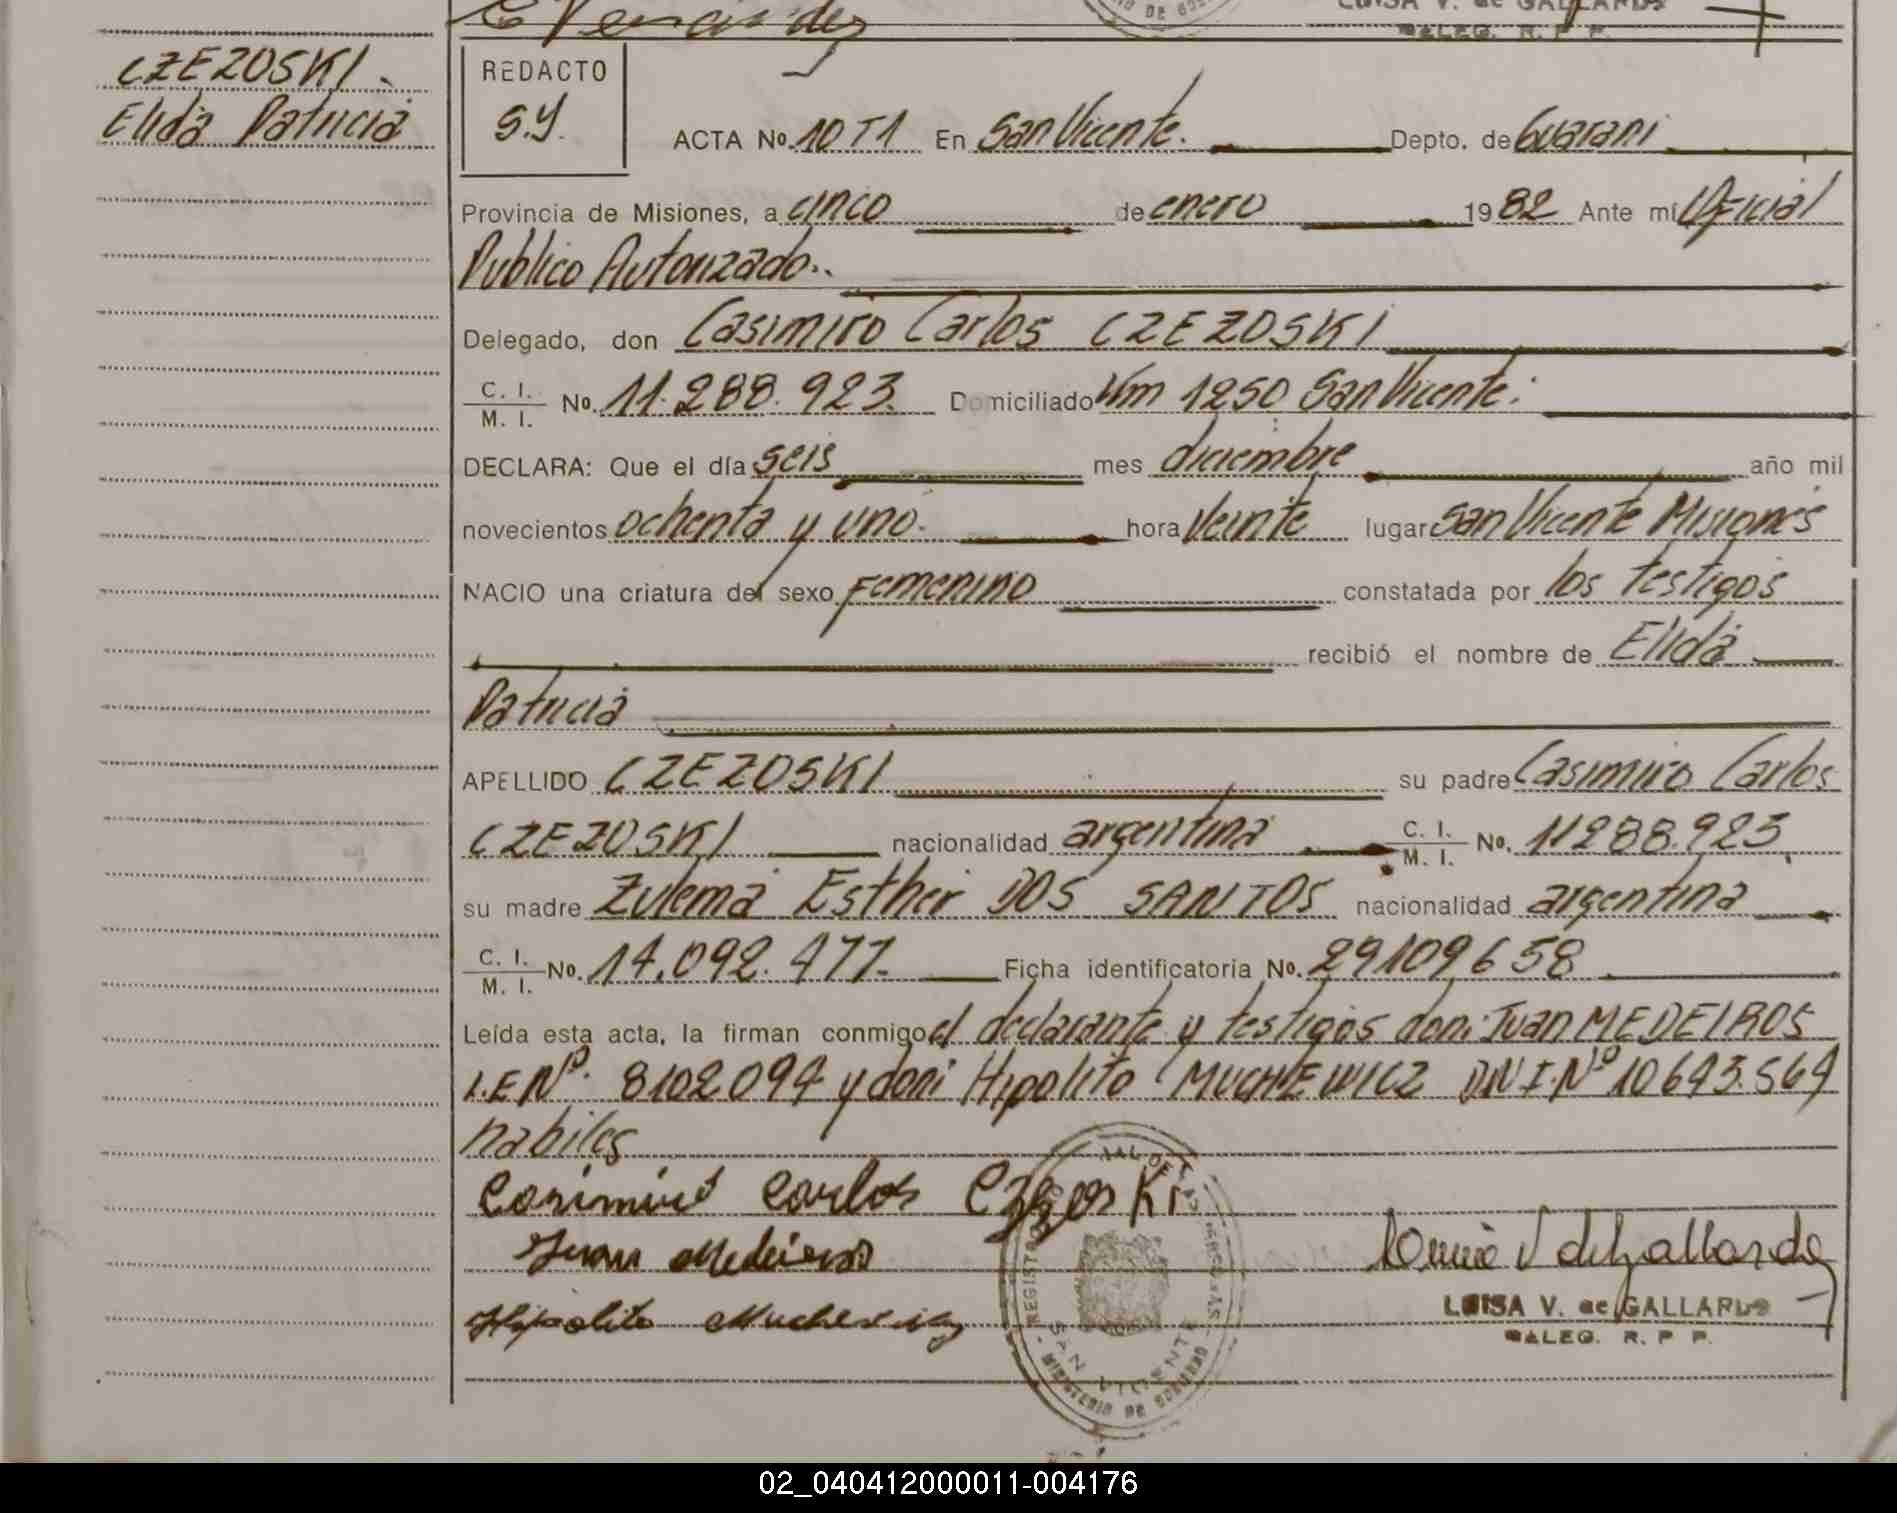 LUISA V. de GALLARDO
DALEG. R. P. P.
CZEZOSKI.
Elida Patricia
REDACTO
S.Y.
ACTA No. 10 T1 En San Vicente. Depto. de Guarani
Provincia de Misiones, a cinco de enero 1982 Ante mí Oficial
Publico Autorizado..
Delegado, don Casimiro Carlos CZEZOSKI
C. I.
M. I. No. 11.288.923. Domiciliado Km 1250 San Vicente.
DECLARA: Que el día seis mes diciembre año mil
novecientos ochenta y uno. hora veinte lugar San Vicente Misiones
NACIO una criatura del sexo Femenino constatada por los testigos
recibió el nombre de Elida
Patricia
APELLIDO CZEZOSKI su padre Casimiro Carlos
CZEZOSKI nacionalidad argentina C. I.
M. I. No. 11288.923.
su madre Zulema Esther DOS SANTOS nacionalidad argentina
C. I.
M. I. No. 14.092.477. Ficha identificatoria No. 29109658
Leída esta acta, la firman conmigo el declarante y testigos don: Juan MEDEIROS
L.E Nº. 8102094 y don: Hipolito MUCHEWICZ D.N.I. Nº 10643.564
habiles
Casimiro Carlos Czezoski
Juan Medeiros
Hipolito Muchewicz
LUISA V. de GALLARDO
DALEG. R. P. P.
SAN VICENTE
MINISTERIO DE GOBIERNO
02_040412000011-004176